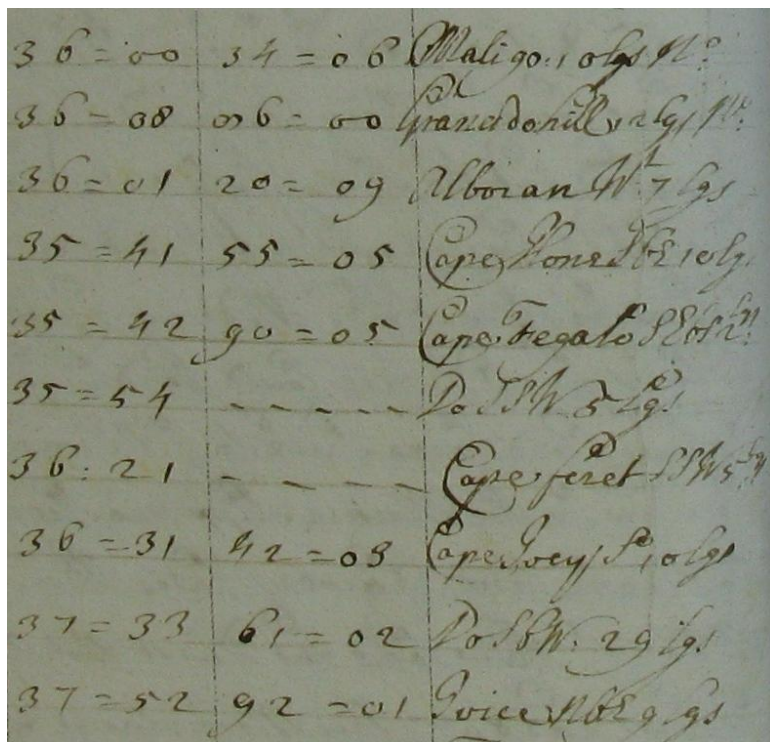 36 = 00 34 = 06 Maligo: 10 lgs No
36 = 08 06 = 00 12 lgs
36 = 01 20 = 09 Alboran Wt 7 lgs
35 = 41 55 = 05 Cape SbE 10 lg
35 = 42 90 = 05 Cape Fegalo
35 = 54 - - - - - Do SSW 5 Lgs
36: 21 - - - - - Cape feret SSW 5 lgs
36 = 31 42 = 03 Cape So 10 lgs
37 = 33 61 = 02 Do SbW: 29 lgs
37 = 52 92 = 01 Ivice NbE 9 lgs